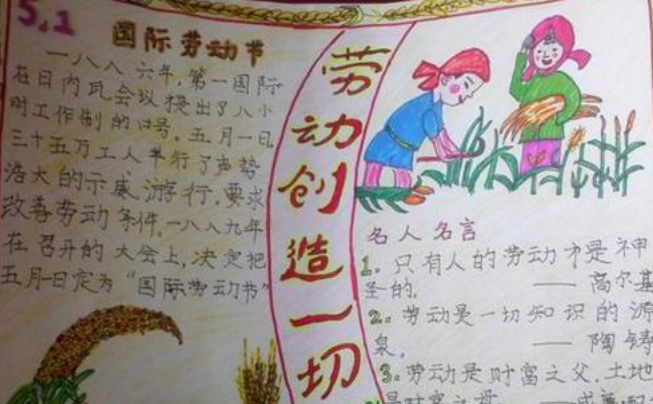 5.1
国际劳动节
一八八六年,第一国际
在日内瓦会议提出了八小
时工作制的口号。五月一日
三十五万工人举行了声势
浩大的示威游行,要求
改善劳动条件。一八八九年
在召开的大会上,决定把
五月一日定为“国际劳动节”
劳动创造一切
名人名言
1。只有人的劳动才是神
圣的。 —— 高尔基
2。劳动是一切知识的源
泉。 —— 陶铸
3。劳动是财富之父,土地
是财富之母